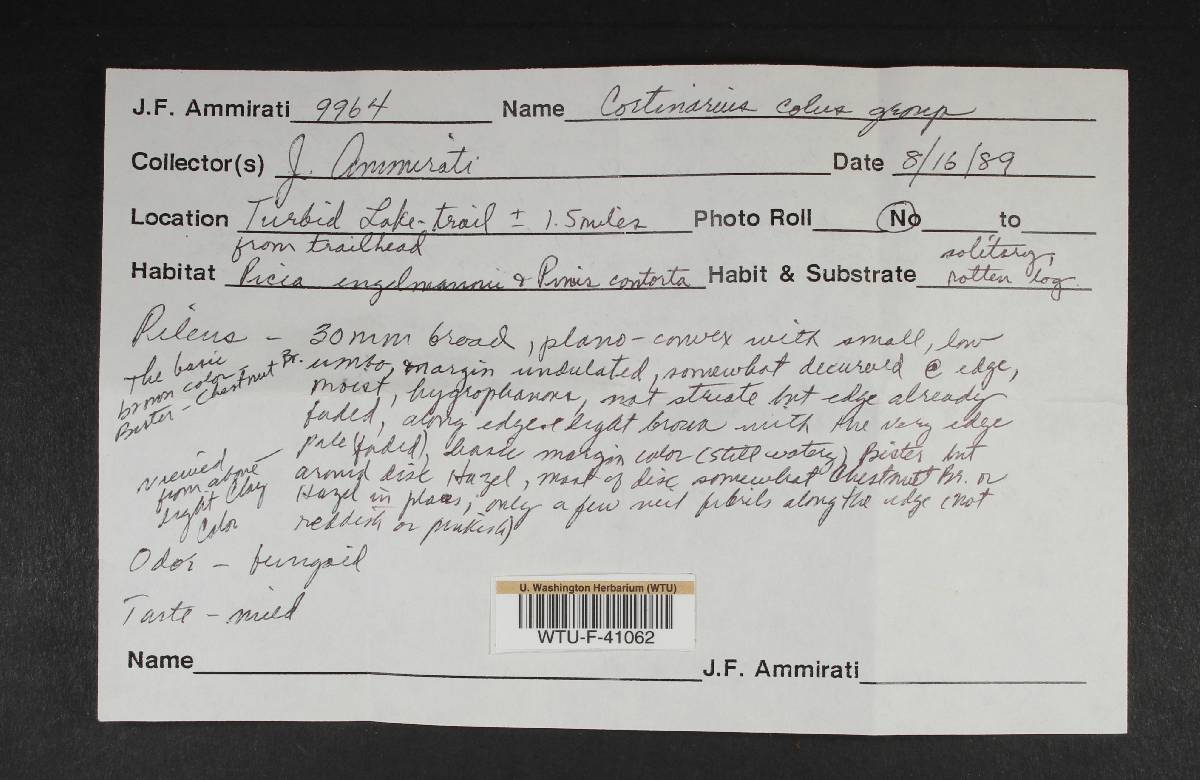 J.F. Ammirati 9964 Name Cortinarius colus group
Collector(s) J. Ammirati Date 8/16/89
Location Turbid Lake-trail ± 1.5 miles Photo Roll No to
from trailhead
Habitat Picia engelmannii & Pinis contorta Habit & Substrate solitary,
rotten log.
Pileus - 30 mm broad, plano-convex with small, low
umbo, margin undulated, somewhat decurved @ edge,
moist, hygrophanous, not striate but edge already
faded, along edge light brown with the very edge
pale (faded), basic margin color (still watery) Bister but
around disc Hazel, most of disc somewhat Chestnut Br. or
Hazel in places, only a few veil fibrils along the edge (not
reddish or pinkish)
The basic
brown color -
Bister - Chestnut Br.
viewed
from above
Light Clay
Color
Odor - fungoid
Taste - mild
U. Washington Herbarium (WTU)
WTU-F-41062
Name J.F. Ammirati